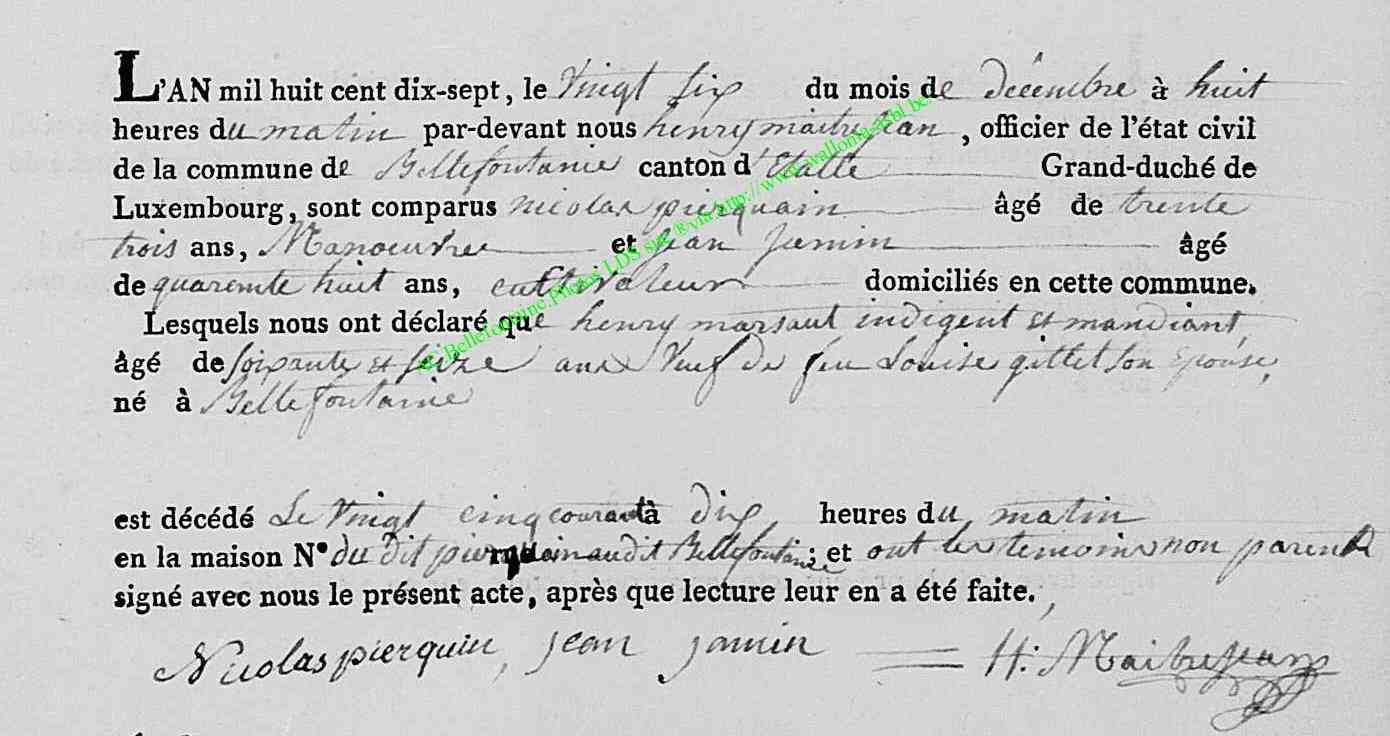 L'AN mil huit cent dix-sept, le Vingt six du mois de décembre à huit
heures du matin par-devant nous henry maitrejean, officier de l'état civil
de la commune de Bellefontaine canton d'Etalle Grand-duché de
Luxembourg, sont comparus nicolas pierquain âgé de trente
trois ans, Manoeuvre et jean jamin âgé
de quarente huit ans, cultivateur domiciliés en cette commune.
Lesquels nous ont déclaré que henry marsaut indigent et mandiant,
âgé de soixante et seize ans Veuf de feu Louise gillet son Epouse,
né à Bellefontaine
est décédé Le Vingt cinq courant à dix, heures du, matin
en la maison N° du dit pierquain audit Bellefontaine; et ont les temoins non parents
signé avec nous le présent acte, après que lecture leur en a été faite.
Nicolas pierquin, jean jamin = H: Maitrejean